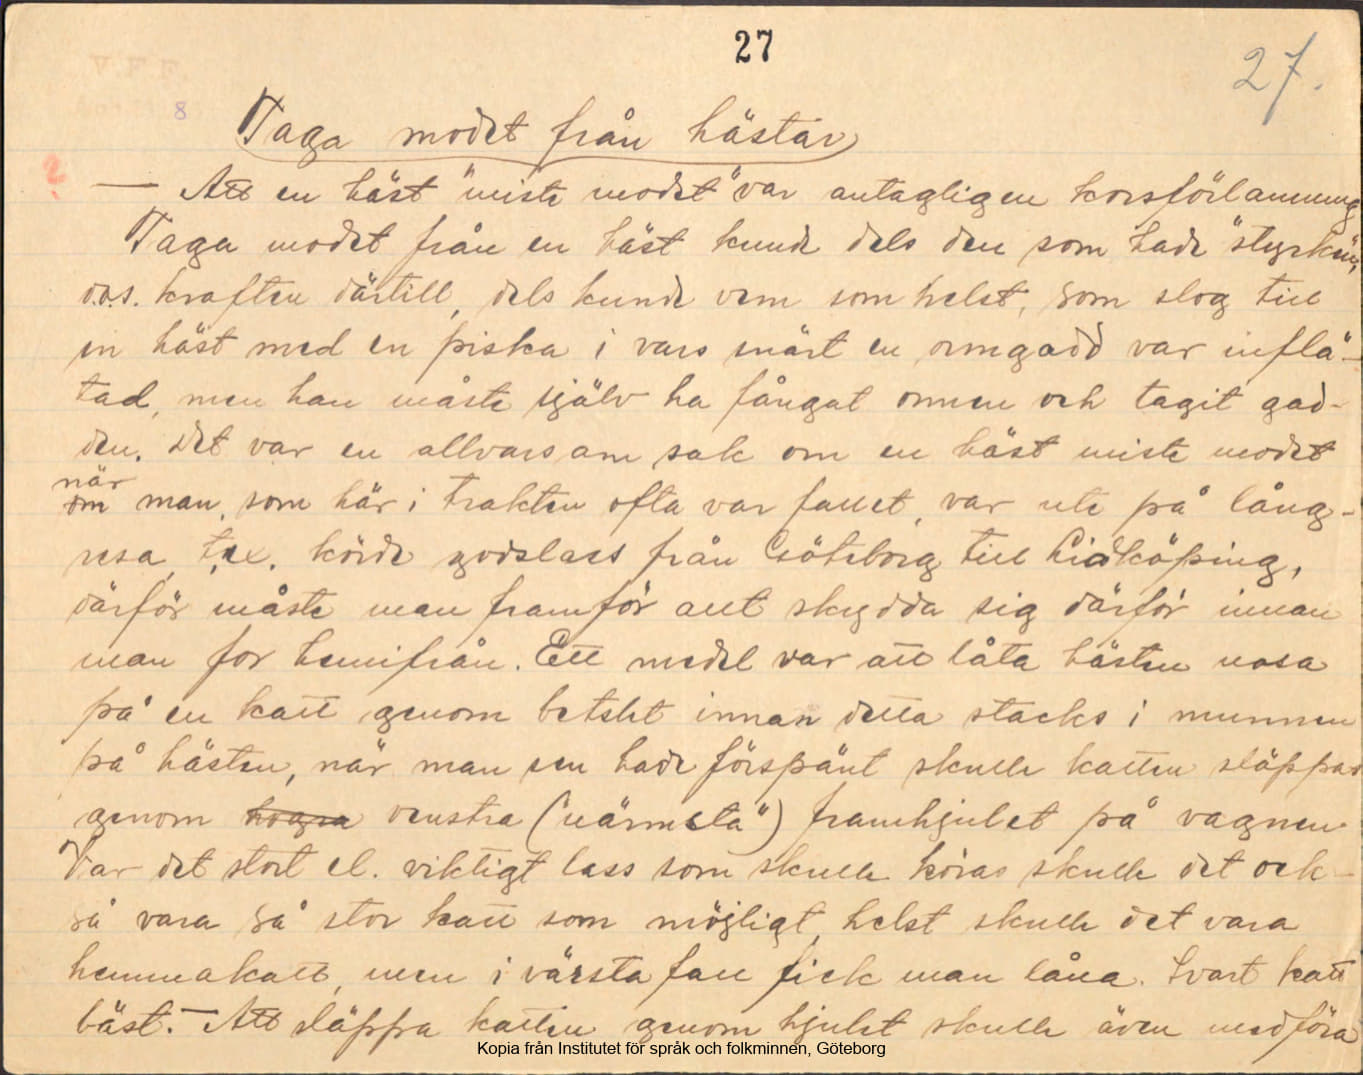 27
27.
V.F.F.
8
Taga modet från hästar
2
— Att en häst "miste modet" var antagligen korsförlamning
Taga modet från en häst kunde dels den som hade "styrken",
d.v.s. kraften därtill, dels kunde vem som helst, som slog till
en häst med en piska i vars snärt en ormgadd var inflä-
tad, men han måste själv ha fångat ormen och tagit gad-
den. Det var en allvarsam sak om en häst miste modet
när
om man, som här i trakten ofta var fallet, var ute på lång-
resa, t.ex. körde godslass från Göteborg till Lidköping,
därför måste man framför allt skydda sig därför innan
man for hemifrån. Ett medel var att låta hästen nosa
på en katt genom betslet innan detta stacks i munnen
på hästen, när man sen hade förspänt skulle katten släppas
genom högra venstra ("närmsta") framhjulet på vagnen.
Var det stort el. viktigt lass som skulle köras skulle det ock-
så vara så stor katt som möjligt, helst skulle det vara
hemmakatt, men i värsta fall fick man låna. Svart katt
bäst. — Att släppa katten genom hjulet skulle även medföra
Kopia från Institutet för språk och folkminnen, Göteborg